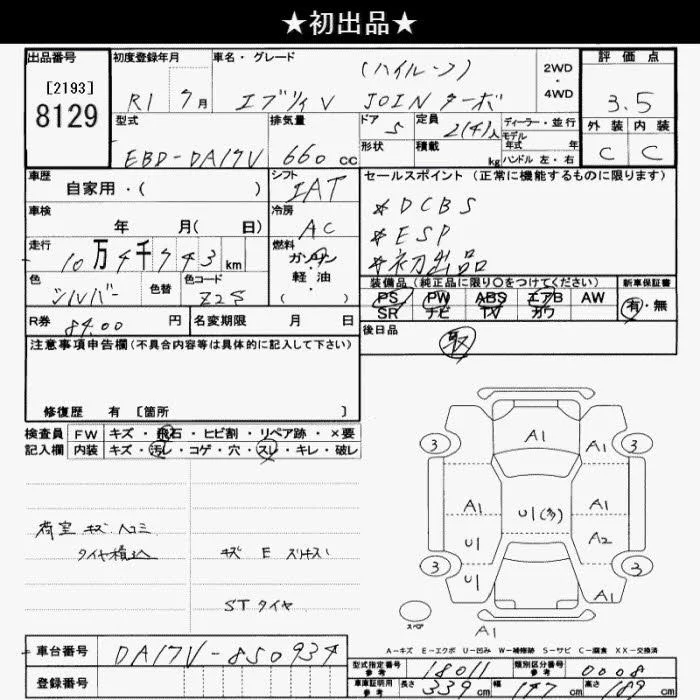 ★初出品★
出品番号 初度登録年月 車名・グレード (ハイルーフ) 2WD・4WD 評価点
[2193]
8129 R1 7月 エブリィV JOINターボ 3.5
型式 排気量 ドア 定員 ディーラー・並行 外装 内装
EBD-DA17V 660 cc 5 2(4)人 モデル年式 年 C C
形状 積載 kg ハンドル 左・右
車歴 シフト セールスポイント (正常に機能するものに限ります)
自家用・( ) IAT *DCBS
車検 冷房 *ESP
年 月( 日) AC *初出品
走行 燃料
10万4千743km ガソリン
軽油・
( )
色 色替 色コード 装備品 (純正品に限り○をつけてください) 新車保証書
シルバー Z2S PS PW ABS エアB AW 有・無
SR ナビ TV カワ
R券 8400円 名変期限 月 日 後日品
取
注意事項申告欄(不具合内容等は具体的に記入して下さい)
修復歴 有 [箇所 ]
検査員 FW キズ・飛石・ヒビ割・リペア跡・×要
記入欄 内装 キズ・汚レ・コゲ・穴・スレ・キレ・破レ
荷室 キズ ヘコミ
タイヤ積込 キズ E スリキズ
STタイヤ
A1
3 A1 3
A1 U1(多) A1
U1 A2
3 U1 A1 3
スペア A1
A-キズ E-エクボ U-凹み W-補修跡 S-サビ C-腐食 XX-交換済
車台番号 DA17V-850934
型式指定番号 参考 18011 類別区分番号 参考 0008
登録番号 車庫証明用 参考 長さ 339cm 幅 147cm 高さ 189cm